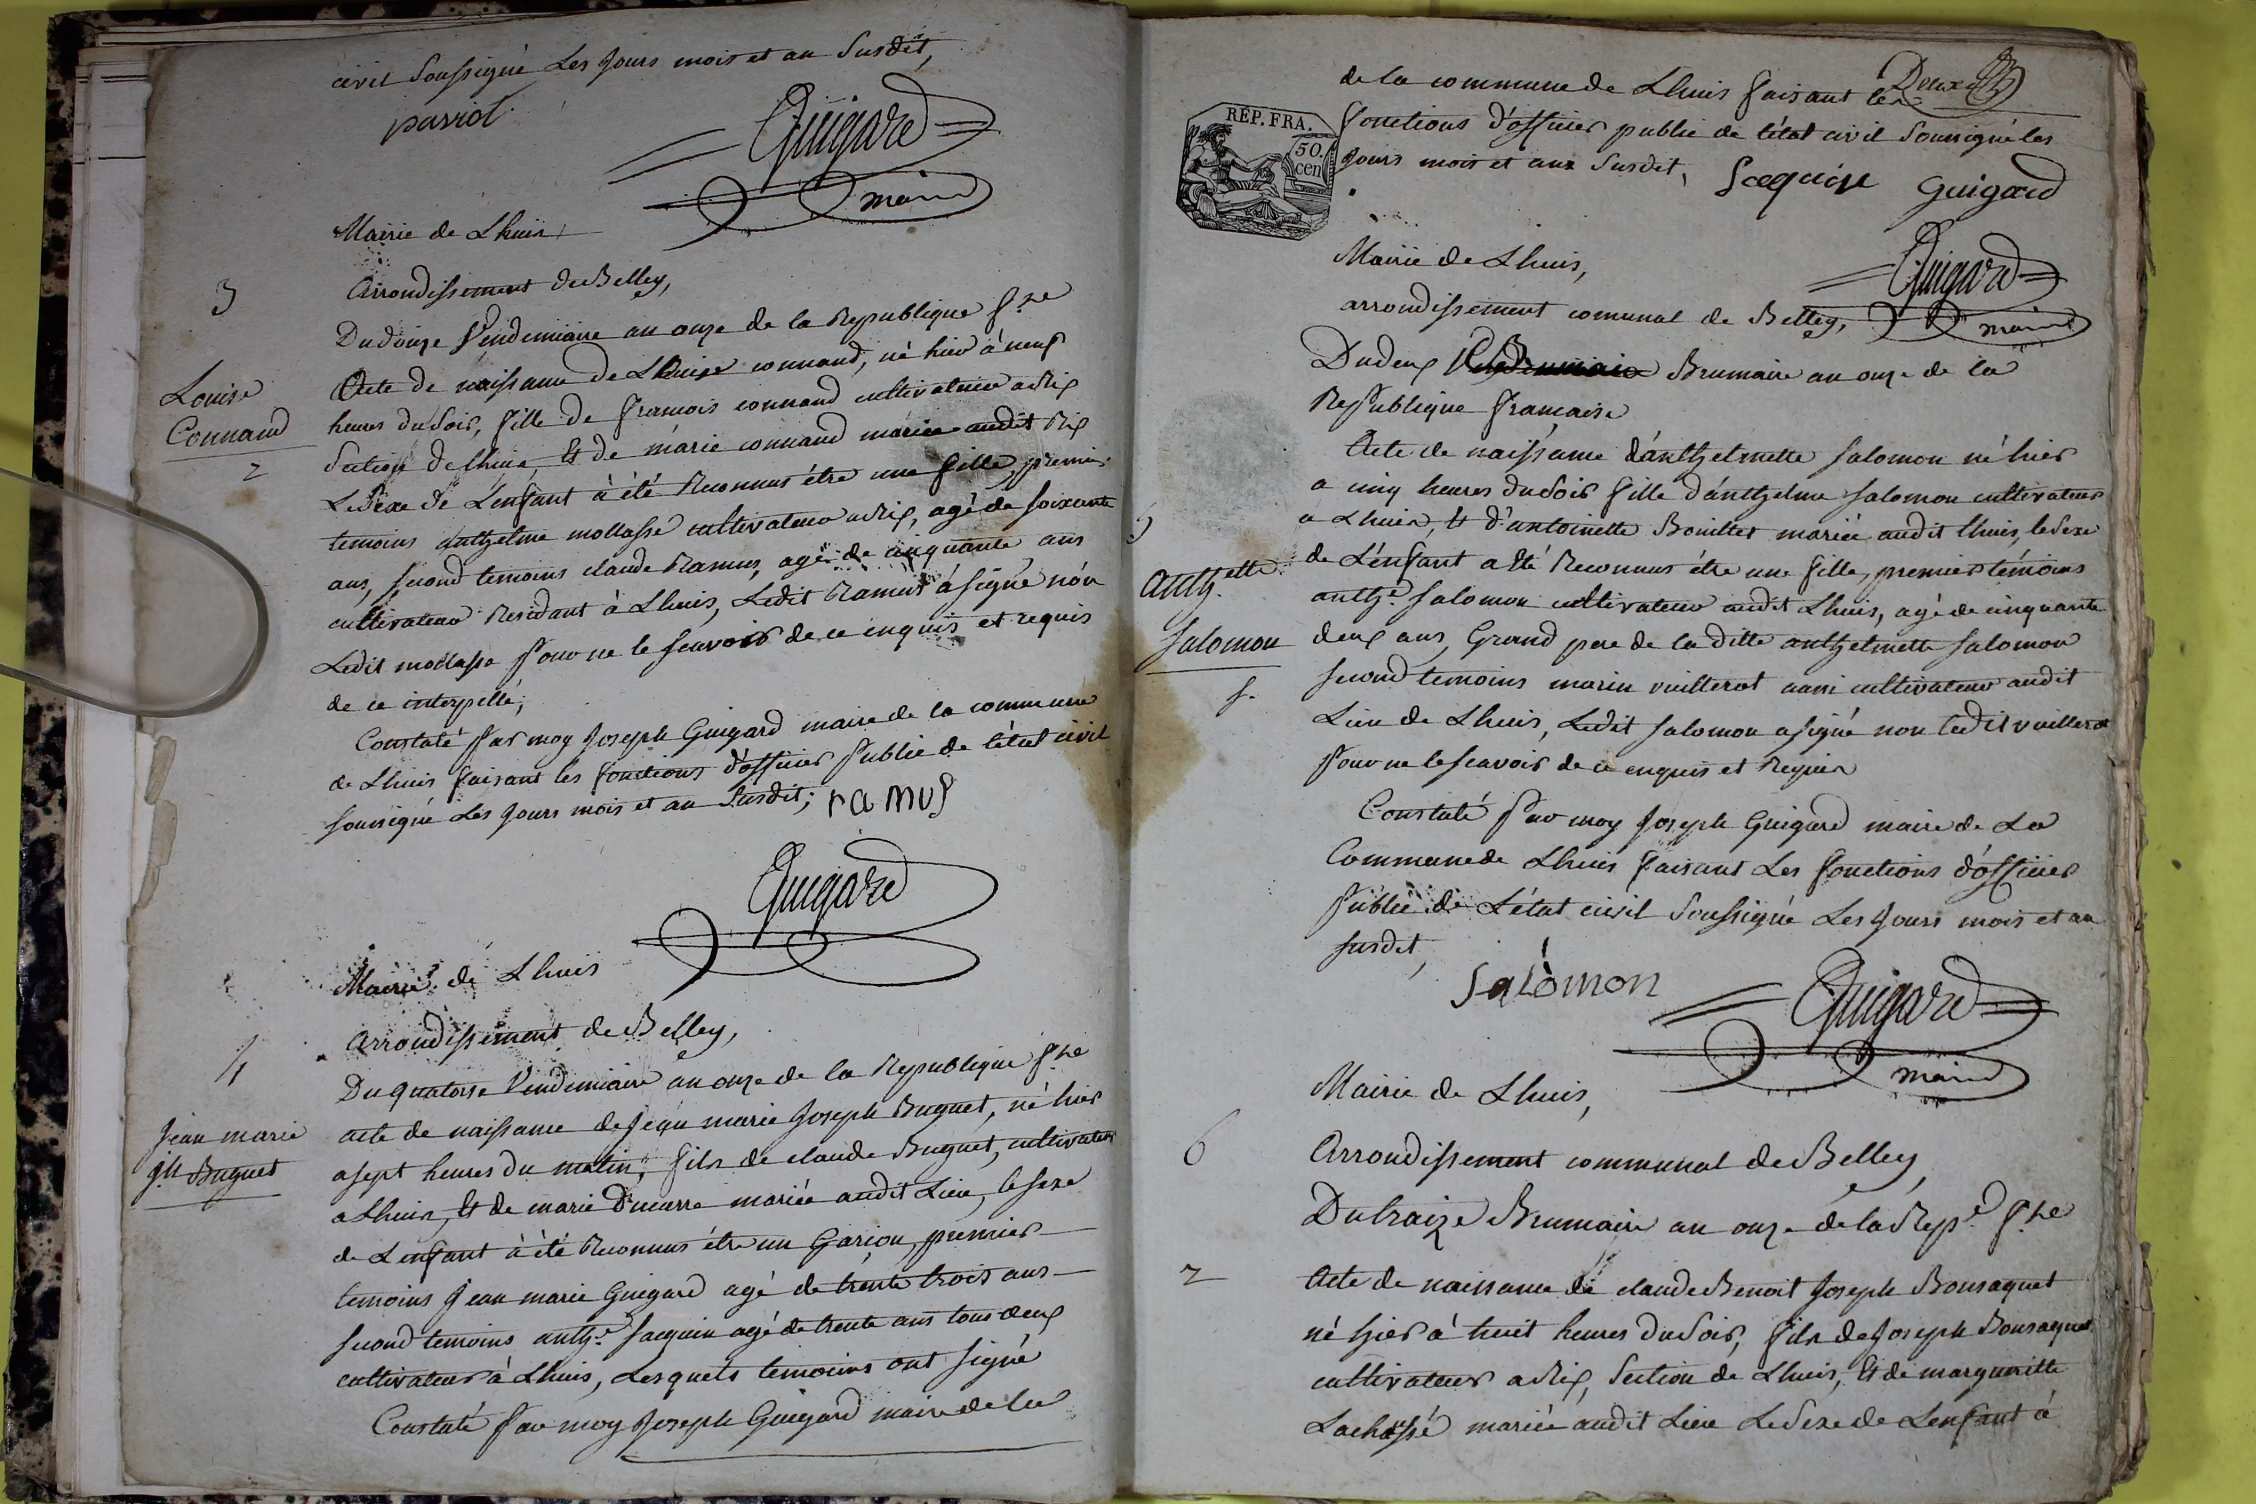 civil soussigné Les Jours mois et an Susdit,
pariot
Guigard
maire
Mairie de Lhuis
Arrondissement de Belley,
3
Du douze Vendemiaire an onze de la Republique fse
Louise
Connand
2
Acte de naissance de Louise connand, né hier à neuf
heures du Soir, fille de francois connand cultivateur a Rix
Section de Lhuis, Et de marie connand mariée audit Rix
Le Sexe de L'enfant à été Reconnus être une fille, premier
temoins anthelme mollasse cultivateur a Rix, agé de soixante
ans, second temoins claude Ramus, agé de cinquante ans
cultivateur Residant à Lhuis, Ledit Ramus à signé non
Ledit mollasse pour ne le scavoir de ce enquis et requis
de ce interpellé,
Constaté par moy Joseph Guigard maire de la commune
de Lhuis faisant les fonctions d'officier Public de l'état civil
soussigné Les Jours mois et an Susdit; ramus
Guigard
Mairie de Lhuis
Arrondissement de Belley,
4
Du quatorse Vendemiaire an onze de la Republique fse
Jean marie
jh Buguet
acte de naissance de Jean marie Joseph Buguet, né hier
a sept heures du matin, fils de claude Buguet, cultivateur
a Lhuis, Et de marie mariée audit Lieu, le sexe
de L'enfant à été Reconnus être un Garçon, premier
temoins Jean marie Guigard agé de trente trois ans
second temoins anthe Jacquin agé de trente ans tous deux
cultivateur à Lhuis, Lesquels temoins ont signé
Constaté par moy Joseph Guigard maire de la
Deux
de la commune de Lhuis faisant les
RÉP. FRA.
50.
cen
fonctions d'officier public de l'état civil Soussigné les
Jours mois et ans Susdit, Jacquin Guigard
Guigard
maire
Mairie de Lhuis,
arrondissement comunal de Belley,
Du deux Brumaire an onze de la
Republique francaise
5
Acte de naissance d'anthelmette Salomon né hier
a cinq heures du Soir fille d'anthelme Salomon cultivateur
a Lhuis, Et d'antoinette Bouillet mariée audit Lhuis, le Sexe
Anth.ette
Salomon
de L'enfant a été Reconnus être une fille, premier témoins
anthe Salomon cultivateur audit Lhuis, agé de cinquante
deux ans, Grand pere de la ditte anthelmette Salomon
second temoins marin vuillerot aussi cultivateur audit
Lieu de Lhuis, Ledit Salomon a signé non ledit vuillerot
pour ne le scavoir de ce enquis et Requis
Constaté par moy Joseph Guigard maire de La
Commune de Lhuis faisant Les fonctions d'officier
Public de L'état civil Soussigné Les Jours mois et an
susdit,
Salomon
Guigard
maire
Mairie de Lhuis,
6
Arrondissement communal de Belley,
Du traize Brumaire an onze de la Repe fse
2
Acte de naissance de claude Benoit Joseph Bonsaquet
né hier à huit heures du Soir, fils de Joseph Bonsaquet
cultivateur a Rix, Section de Lhuis, Et de margueritte
Lachassé mariée audit Lieu Le Sexe de L'enfant à